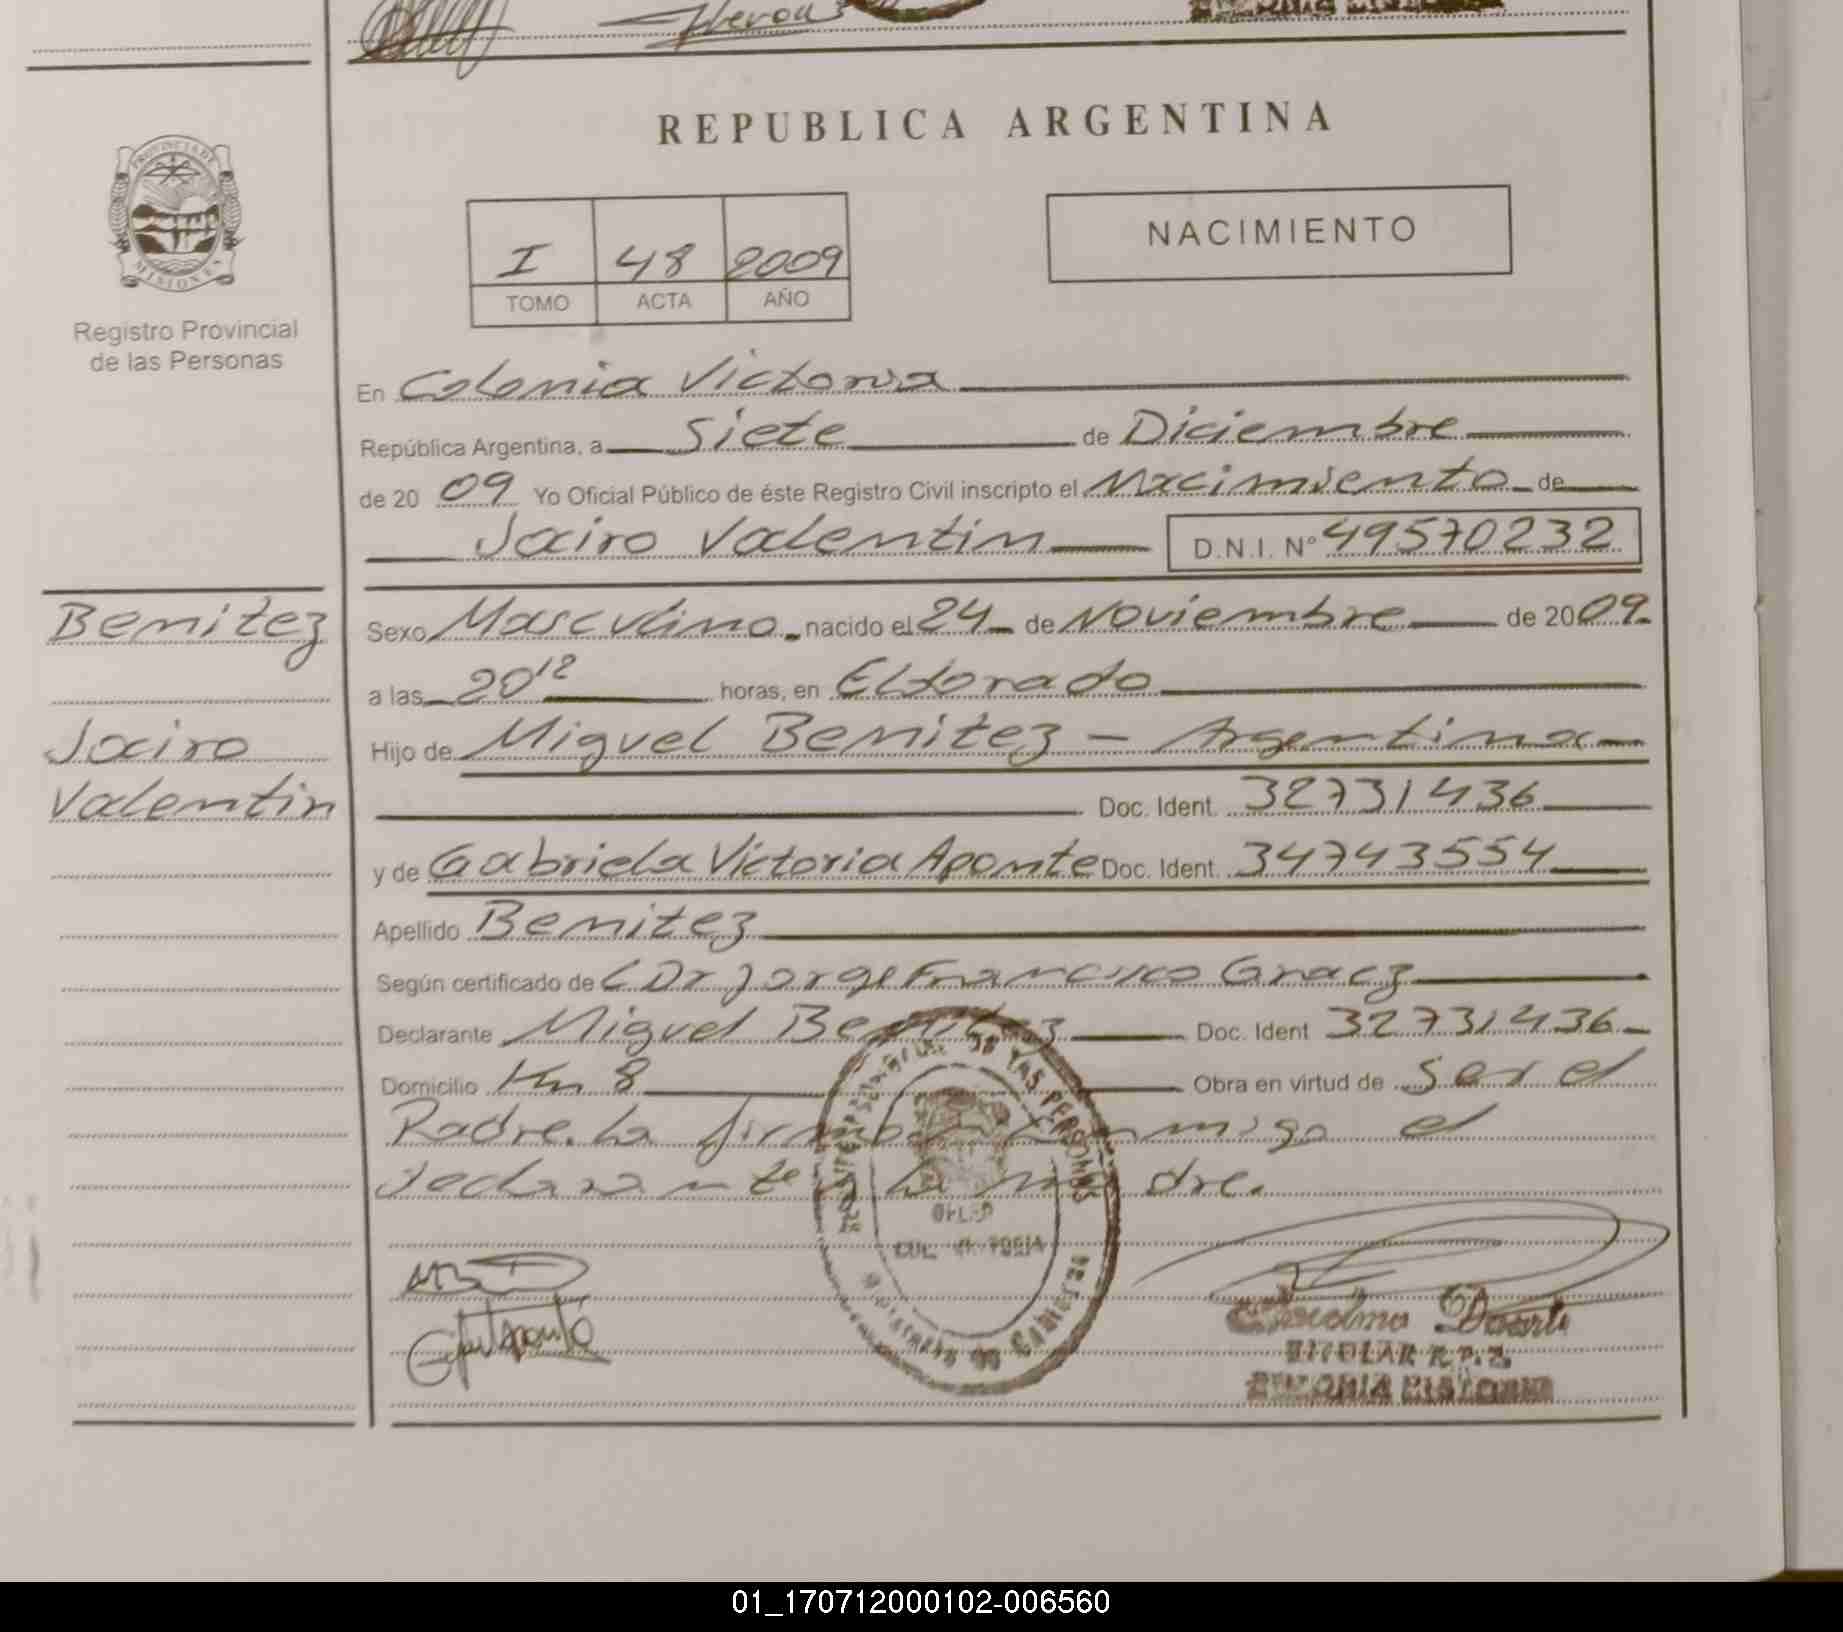 REPUBLICA ARGENTINA
PROVINCIA DE
MISIONES
Registro Provincial
de las Personas
I 48 2009
TOMO ACTA AÑO
NACIMIENTO
En Colonia Victoria
República Argentina, a Siete de Diciembre
de 20 09 Yo Oficial Público de éste Registro Civil inscripto el Nacimiento de
Jairo Valentin D.N.I. N° 49570232
Benitez
Jairo
Valentin
Sexo Masculino nacido el 24 de Noviembre de 2009.
a las 20 12 horas, en Eldorado
Hijo de Miguel Benitez - Argentina
Doc. Ident. 32731436
y de Gabriela Victoria Aponte Doc. Ident. 34743554
Apellido Benitez
Según certificado de Dr Jorge Francisco
Declarante Miguel Benitez Doc. Ident 32731436
Domicilio Km 8 Obra en virtud de Ser el
Padre. La firman conmigo el
declarante la madre.
DE LAS PERSONAS
01_170712000102-006560